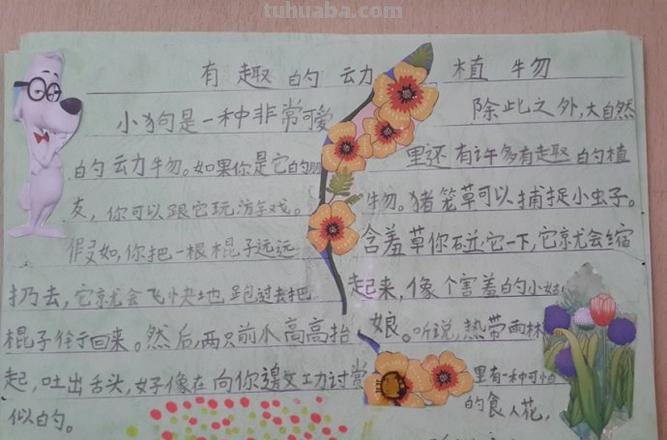 tuhuaba.com
有趣的动植物
小狗是一种非常可爱
的动物。如果你是它的朋
友，你可以跟它玩游戏。
假如，你把一根棍子远远
扔去，它就会飞快地跑过去把
棍子往回来。然后，两只前爪高高抬
起，吐出舌头，好像在向你邀功讨赏
似的。
除此之外，大自然
里还有许多有趣的植
物。猪笼草可以捕捉小虫子。
含羞草你碰它一下，它就会缩
起来，像个害羞的小姑
娘。听说，热带雨林
里有一种可怕
的食人花，